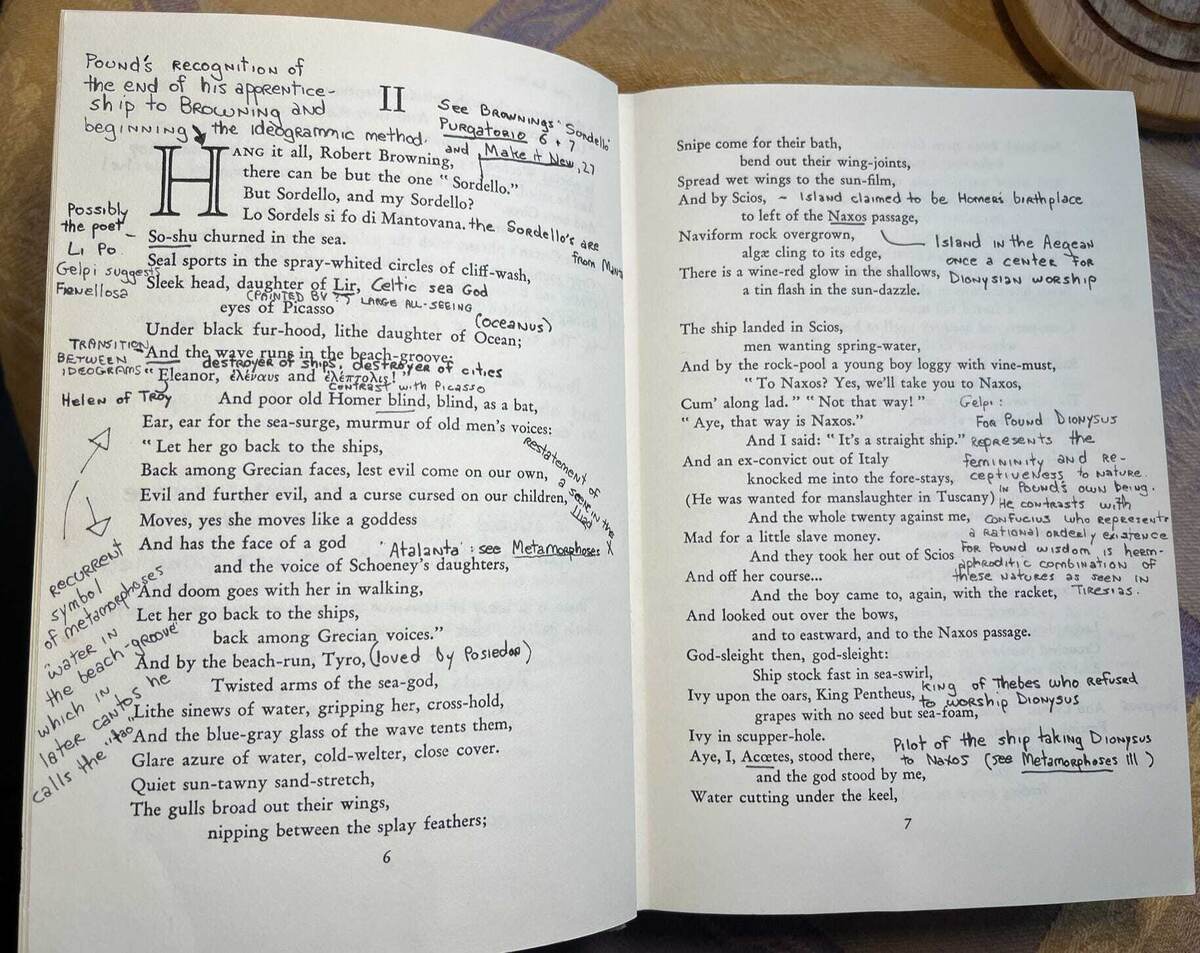 Pound's recognition of
the end of his apprentice-
ship to Browning and
beginning the ideogrammic method.
II
See Brownings 'Sordello'
Purgatorio 6 + 7
and Make it New, 27
HANG it all, Robert Browning,
there can be but the one “ Sordello.”
But Sordello, and my Sordello?
Lo Sordels si fo di Mantovana. the Sordello's are
from
Possibly
the poet
Li Po
Gelpi suggests
So-shu churned in the sea.
Seal sports in the spray-whited circles of cliff-wash,
Sleek head, daughter of Lir, Celtic sea God
(painted by ?) large all-seeing
eyes of Picasso
(Oceanus)
Under black fur-hood, lithe daughter of Ocean;
Transition
between
ideograms
And the wave runs in the beach-groove:
destroyer of ships, destroyer of cities
“ Eleanor, ἑλέναυς and ἑλέπτολις!
contrast with Picasso
Helen of Troy
And poor old Homer blind, blind, as a bat,
Ear, ear for the sea-surge, murmur of old men's voices:
“ Let her go back to the ships,
Back among Grecian faces, lest evil come on our own,
Restatement of
a scene in the
Iliad
Evil and further evil, and a curse cursed on our children,
Moves, yes she moves like a goddess
And has the face of a god
'Atalanta': see Metamorphoses X
and the voice of Schoeney's daughters,
And doom goes with her in walking,
Let her go back to the ships,
back among Grecian voices.”
And by the beach-run, Tyro, (loved by Posiedon)
Twisted arms of the sea-god,
Lithe sinews of water, gripping her, cross-hold,
And the blue-gray glass of the wave tents them,
Glare azure of water, cold-welter, close cover.
Quiet sun-tawny sand-stretch,
The gulls broad out their wings,
nipping between the splay feathers;
recurrent
symbol
of metamorphoses
"water in
the beach-groove"
which in
later cantos he
calls the "tao"
6
Snipe come for their bath,
bend out their wing-joints,
Spread wet wings to the sun-film,
And by Scios, ~ Island claimed to be Homer's birthplace
to left of the Naxos passage,
Naviform rock overgrown,
algæ cling to its edge,
There is a wine-red glow in the shallows,
a tin flash in the sun-dazzle.
Island in the Aegean
once a center for
Dionysian worship
The ship landed in Scios,
men wanting spring-water,
And by the rock-pool a young boy loggy with vine-must,
“ To Naxos? Yes, we'll take you to Naxos,
Cum' along lad.” “ Not that way!”
“ Aye, that way is Naxos.”
And I said: “ It's a straight ship.”
And an ex-convict out of Italy
knocked me into the fore-stays,
(He was wanted for manslaughter in Tuscany)
And the whole twenty against me,
Mad for a little slave money.
And they took her out of Scios
And off her course...
And the boy came to, again, with the racket,
Gelpi:
For Pound Dionysus
represents the
femininity and re-
ceptiveness to nature
in Pound's own being.
He contrasts with
Confucius who represents
a rational orderly existence
For Pound wisdom is herm-
aphroditic combination of
these natures as seen in
Tiresias.
And looked out over the bows,
and to eastward, and to the Naxos passage.
God-sleight then, god-sleight:
Ship stock fast in sea-swirl,
Ivy upon the oars, King Pentheus,
king of Thebes who refused
to worship Dionysus
grapes with no seed but sea-foam,
Ivy in scupper-hole.
Aye, I, Acœtes, stood there,
Pilot of the ship taking Dionysus
to Naxos (see Metamorphoses III)
and the god stood by me,
Water cutting under the keel,
7